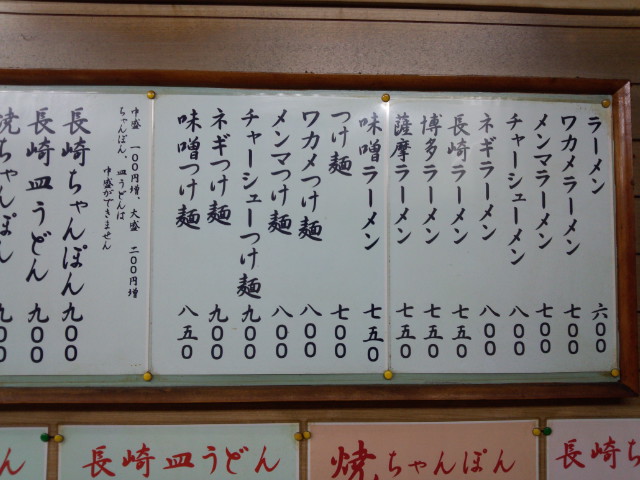 ラーメン 六00
ワカメラーメン 七00
メンマラーメン 七00
チャーシューメン 八00
ネギラーメン 八00
長崎ラーメン 七五0
博多ラーメン 七五0
薩摩ラーメン 七五0
味噌ラーメン 七五0
つけ麺 七00
ワカメつけ麺 八00
メンマつけ麺 八00
チャーシューつけ麺 九00
ネギつけ麺 九00
味噌つけ麺 八五0
中盛 一00円増、大盛 二00円増
ちゃんぽん、皿うどんは
中盛ができません
長崎ちゃんぽん 九00
長崎皿うどん 九00
焼ちゃんぽん 九00
長崎ち
焼ちゃんぽん
長崎皿うどん
ん